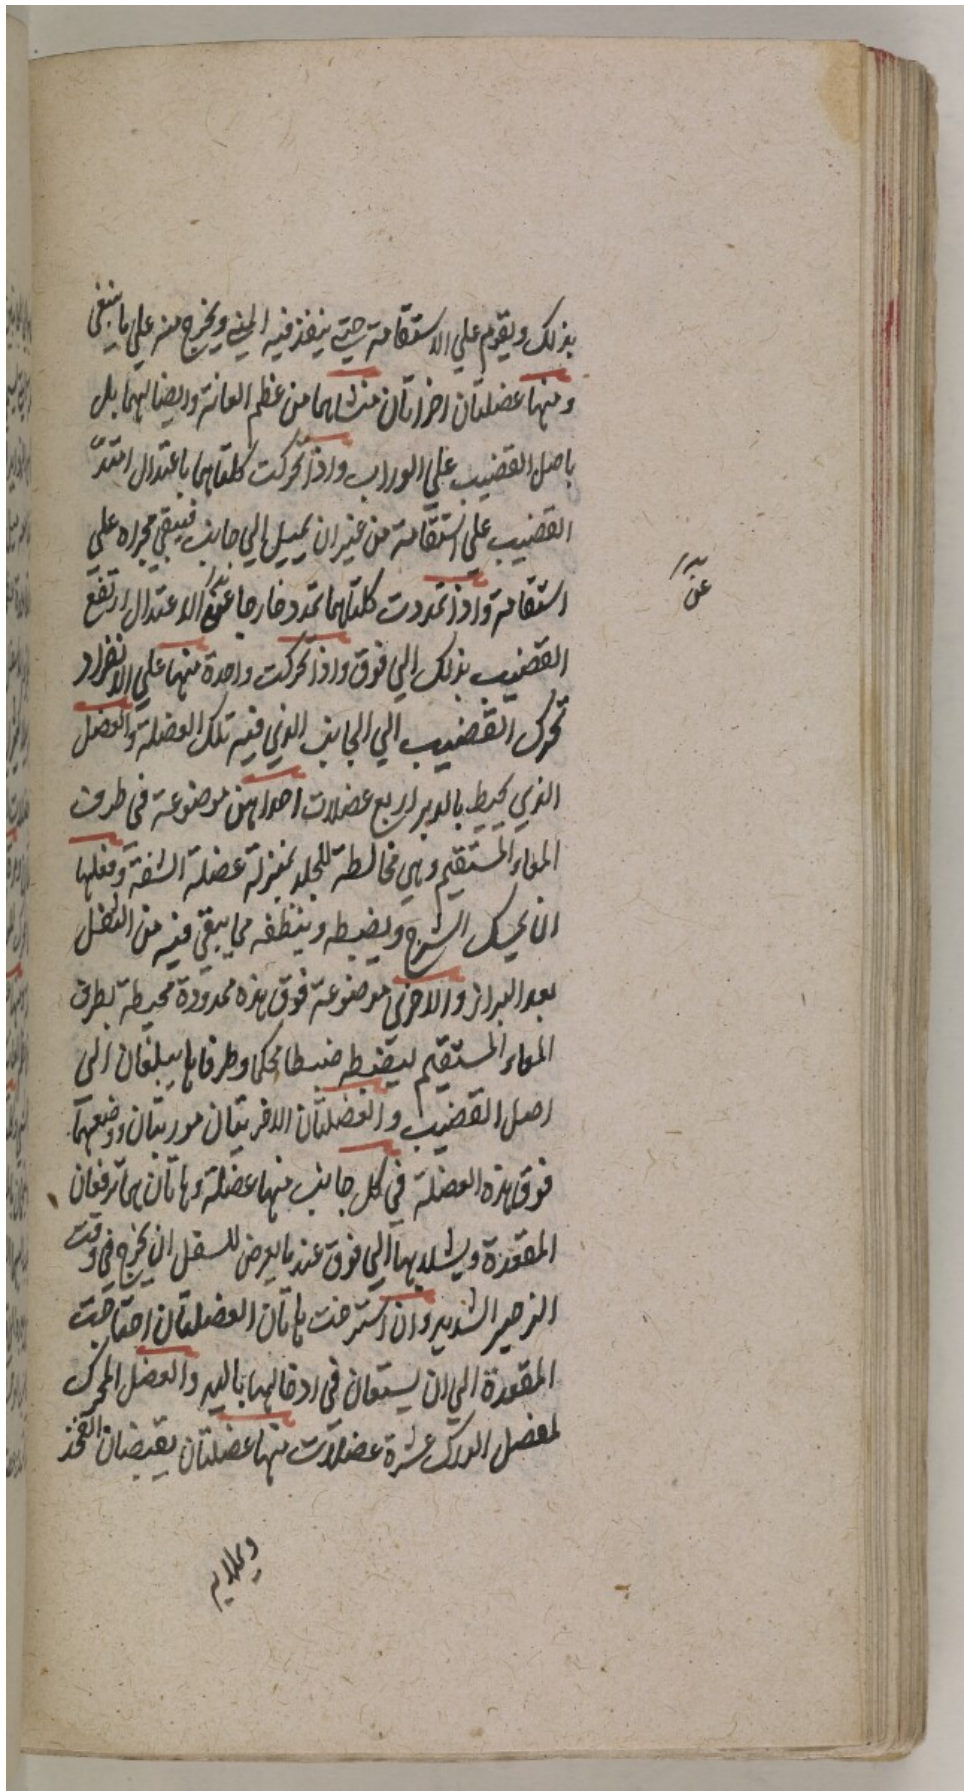 بذلك ويقوم علي الاستقامة حتي ينفذ فيه المني ويخرج منه علي ما ينبغي
ومنها عضلتان اخراتان منشاهما من عظم العانة وايضالهما بل
باصل القضيب علي الوراب واذا تحركت كلتاهما باعتدال امتدّ
القضيب علي استقامة من غير ان يميل الي جانب فيبقي مجراه علي
استقامة واذا تمددت كلتاهما تمددا خارجا عن الاعتدال ارتفع
عن
القضيب بذلك الي فوق واذا تحركت واحدة منها علي الانفراد
تحرك القضيب الي الجانب الذي فيه تلك العضلة والعضل
الذي يحيط بالدبر اربع عضلات احداهن موضوعة في طرف
المعاء المستقيم وهي مخالطة للجلد بمنزلة عضلة الشفة وفعلها
ان يمسك الشرج ويضبطه وينظفه مما يبقي فيه من الثفل
بعد البراز والاخري موضوعة فوق هذه ممدودة محيطة بطرف
المعاء المستقيم ليضبطه ضبطا محكما وطرفاها يبلغان الي
اصل القضيب والعضلتان الاخريتان موربتان ووضعهما
فوق هذه العضلة في كل جانب منها عضلة وهاتان هما ترفعان
المقعدة ويشلانها الي فوق عند ما يعرض للسفل ان يخرج في وقت
الزحير الشديد وان استرخت هاتان العضلتان احتاجت
المقعدة الي ان يستعان في ادخالها باليد والعضل المحرك
لمفصل الورك عشرة عضلات منها عضلتان يقبضان الفخذ